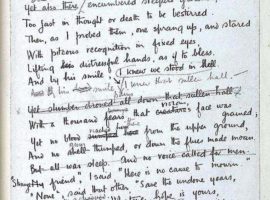 Yet also there encumbered sleepers
Too fast in thought or death to be bestirred.
Then, as I probed them, one sprang up, and stared
With piteous recognition in fixed eyes,
Lifting distressful hands, as if to bless.
And by his smile, I knew we stood in Hell
I knew that sullen hall
Yet slumber droned all down that sullen hall
With a thousand fears that vision's face was grained;
Yet no blood reached there from the upper ground,
And no thumped, or down the flues made moan.
But all was sleep. And no voice called for men.
friend", I said "Here is no cause to mourn"
"None", said that other, "Save the undone years,
hope is yours,